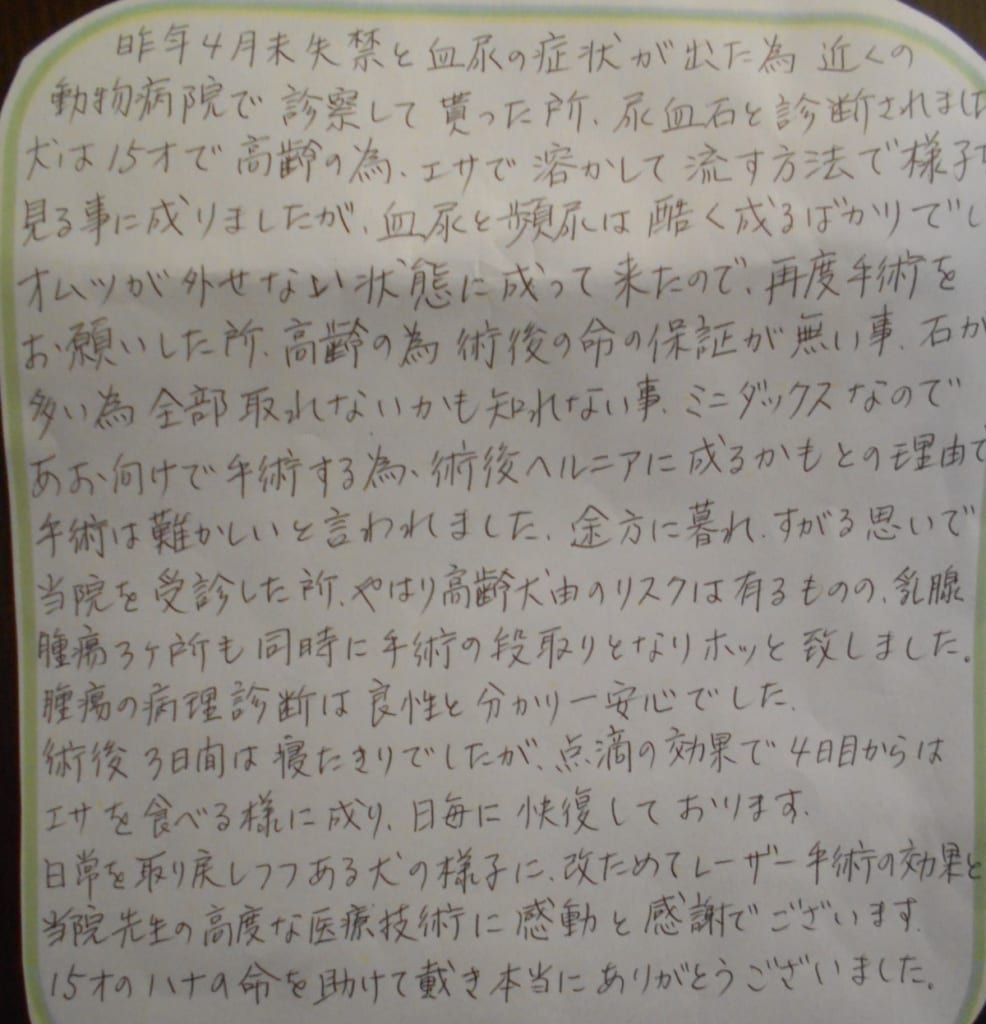 昨年4月末失禁と血尿の症状が出た為 近くの
動物病院で診察して貰った所、尿血石と診断されました
犬は15才で高齢の為、エサで溶かして流す方法で様子
見る事に成りましたが、血尿と頻尿は酷く成るばかりでし
オムツが外せない状態に成って来たので、再度手術を
お願いした所、高齢の為 術後の命の保証が無い事、石が
多い為全部取れないかも知れない事、ミニダックスなので
あお向けで手術する為、術後ヘルニアに成るかもとの理由で
手術は難かしいと言われました、途方に暮れ、すがる思いで
当院を受診した所、やはり高齢犬由のリスクは有るものの、乳腺
腫瘍3ヶ所も同時に手術の段取りとなりホッと致しました。
腫瘍の病理診断は良性と分かり一安心でした、
術後3日間は寝たきりでしたが、点滴の効果で4日目からは
エサを食べる様に成り、日毎に快復しております、
日常を取り戻しつつある犬の様子に、改ためてレーザー手術の効果と
当院先生の高度な医療技術に感動と感謝でございます、
15才のハナの命を助けて戴き本当にありがとうございました。